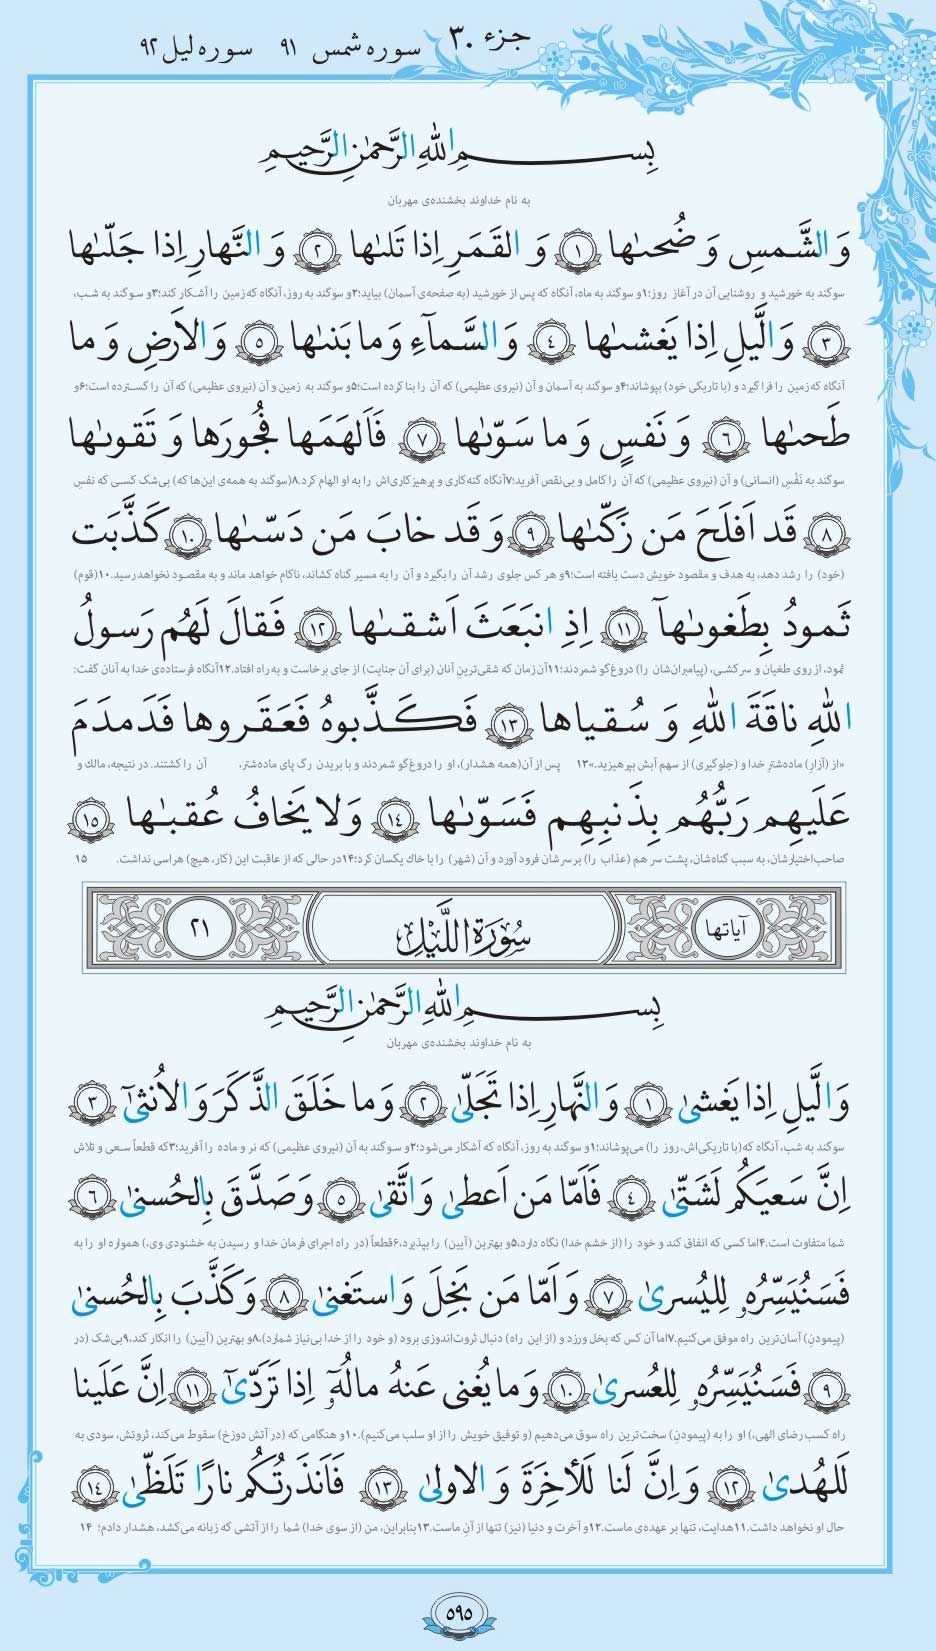 جزء ۳۰ سوره شمس ۹۱ سوره لیل ۹۲
بِسمِ اللهِ الرَّحمٰنِ الرَّحیمِ
به نام خداوند بخشنده‌ی مهربان
وَ الشَّمسِ وَ ضُحىٰها ۱ وَ القَمَرِ اِذا تَلىٰها ۲ وَ النَّهارِ اِذا جَلّىٰها
سوگند به خورشید و روشنایی آن در آغاز روز؛۱و سوگند به ماه، آنگاه که پس از خورشید (به صفحه‌ی آسمان) بیاید؛۲و سوگند به روز، آنگاه که زمین را آشکار کند؛۳و سوگند به شب،
۳ وَ الَّیلِ اِذا یَغشىٰها ۴ وَ السَّمآءِ وَ ما بَنىٰها ۵ وَ الاَرضِ وَ ما
آنگاه که زمین را فرا گیرد و (با تاریکی خود) بپوشاند؛۴و سوگند به آسمان و آن (نیروی عظیمی) که آن را بنا کرده است؛۵و سوگند به زمین و آن (نیروی عظیمی) که آن را گسترده است؛۶و
طَحىٰها ۶ وَ نَفسٍ وَ ما سَوّىٰها ۷ فَاَلهَمَها فُجورَها وَ تَقوىٰها
سوگند به نَفْسِ (انسانی) و آن (نیروی عظیمی) که آن را کامل و بی‌نقص آفرید؛۷آنگاه گنه‌کاری و پرهیزکاری‌اش را به او الهام کرد.۸(سوگند به همه‌ی این‌ها که) بی‌شک کسی که نفسِ
۸ قَد اَفلَحَ مَن زَکّىٰها ۹ وَ قَد خابَ مَن دَسّىٰها ۱۰ کَذَّبَت
(خود) را رشد دهد، به هدف و مقصود خویش دست یافته است؛۹و هر کس جلوی رشد آن را بگیرد و آن را به مسیر گناه کشاند، ناکام خواهد ماند و به مقصود نخواهد رسید.۱۰(قوم)
ثَمودُ بِطَغوىٰهآ ۱۱ اِذِ انبَعَثَ اَشقىٰها ۱۲ فَقالَ لَهُم رَسولُ
ثمود، از روی طغیان و سرکشی، (پیامبران‌شان را) دروغ‌گو شمردند؛۱۱آن زمان که شقی‌ترینِ آنان (برای آن جنایت) از جای برخاست و به راه افتاد.۱۲آنگاه فرستاده‌ی خدا به آنان گفت:
اللهِ ناقَةَ اللهِ وَ سُقیاها ۱۳ فَکَذَّبوهُ فَعَقَروها فَدَمدَمَ
«از (آزار) ماده‌شترِ خدا و (جلوگیری) از سهم آبش بپرهیزید.»۱۳ پس از آن(همه هشدار)، او را دروغ‌گو شمردند و با بریدن رگ پای ماده‌شتر، آن را کشتند. در نتیجه، مالك و
عَلَیهِم رَبُّهُم بِذَنبِهِم فَسَوّىٰها ۱۴ وَ لا یَخافُ عُقبىٰها ۱۵
صاحب‌اختیارشان، به سبب گناه‌شان، پشت سر هم (عذاب را) بر سرشان فرود آورد و آن (شهر) را با خاك یکسان کرد؛۱۴در حالی که از عاقبت این (کار، هیچ) هراسی نداشت. ۱۵
آیاتها سُورَةُ اللَّيْلِ ۲۱
بِسمِ اللهِ الرَّحمٰنِ الرَّحیمِ
به نام خداوند بخشنده‌ی مهربان
وَ الَّیلِ اِذا یَغشىٰ ۱ وَ النَّهارِ اِذا تَجَلّىٰ ۲ وَ ما خَلَقَ الذَّکَرَ وَ الاُنثىٰٓ ۳
سوگند به شب، آنگاه که(با تاریکی‌اش، روز را) می‌پوشاند؛۱و سوگند به روز، آنگاه که آشکار می‌شود؛۲و سوگند به آن (نیروی عظیمی) که نر و ماده را آفرید؛۳که قطعاً سعی و تلاش
اِنَّ سَعیَکُم لَشَتّىٰ ۴ فَاَمّا مَن اَعطىٰ وَ اتَّقىٰ ۵ وَ صَدَّقَ بِالحُسنىٰ ۶
شما متفاوت است.۴اما کسی که انفاق کند و خود را (از خشم خدا) نگاه دارد،۵و بهترین (آیین) را بپذیرد،۶قطعاً (در راه اجرای فرمان خدا و رسیدن به خشنودی وی،) همواره او را به
فَسَنُیَسِّرُهو لِلیُسرىٰ ۷ وَ اَمّا مَن بَخِلَ وَ استَغنىٰ ۸ وَ کَذَّبَ بِالحُسنىٰ
(پیمودن) آسان‌ترین راه موفق می‌کنیم.۷اما آن کس که بخل ورزد و (از این راه) دنبال ثروت‌اندوزی برود (و خود را از خدا بی‌نیاز شمارد)،۸و بهترین (آیین) را انکار کند،۹بی‌شک (در
۹ فَسَنُیَسِّرُهو لِلعُسرىٰ ۱۰ وَ ما یُغنی عَنهُ مالُهوٓ اِذا تَرَدّىٰٓ ۱۱ اِنَّ عَلَینا
راه کسب رضای الهی،) او را به (پیمودن) سخت‌ترین راه سوق می‌دهیم (و توفیق خویش را از او سلب می‌کنیم).۱۰و هنگامی که (در آتش دوزخ) سقوط می‌کند، ثروتش، سودی به
لَلهُدىٰ ۱۲ وَ اِنَّ لَنا لَلأٰخِرَةَ وَ الاولىٰ ۱۳ فَاَنذَرتُکُم نارًا تَلَظّىٰ ۱۴
حال او نخواهد داشت.۱۱هدایت، تنها بر عهده‌ی ماست.۱۲و آخرت و دنیا (نیز) تنها از آنِ ماست.۱۳بنابراین، من (از سوی خدا) شما را از آتشی که زبانه می‌کشد، هشدار دادم؛ ۱۴
۵۹۵